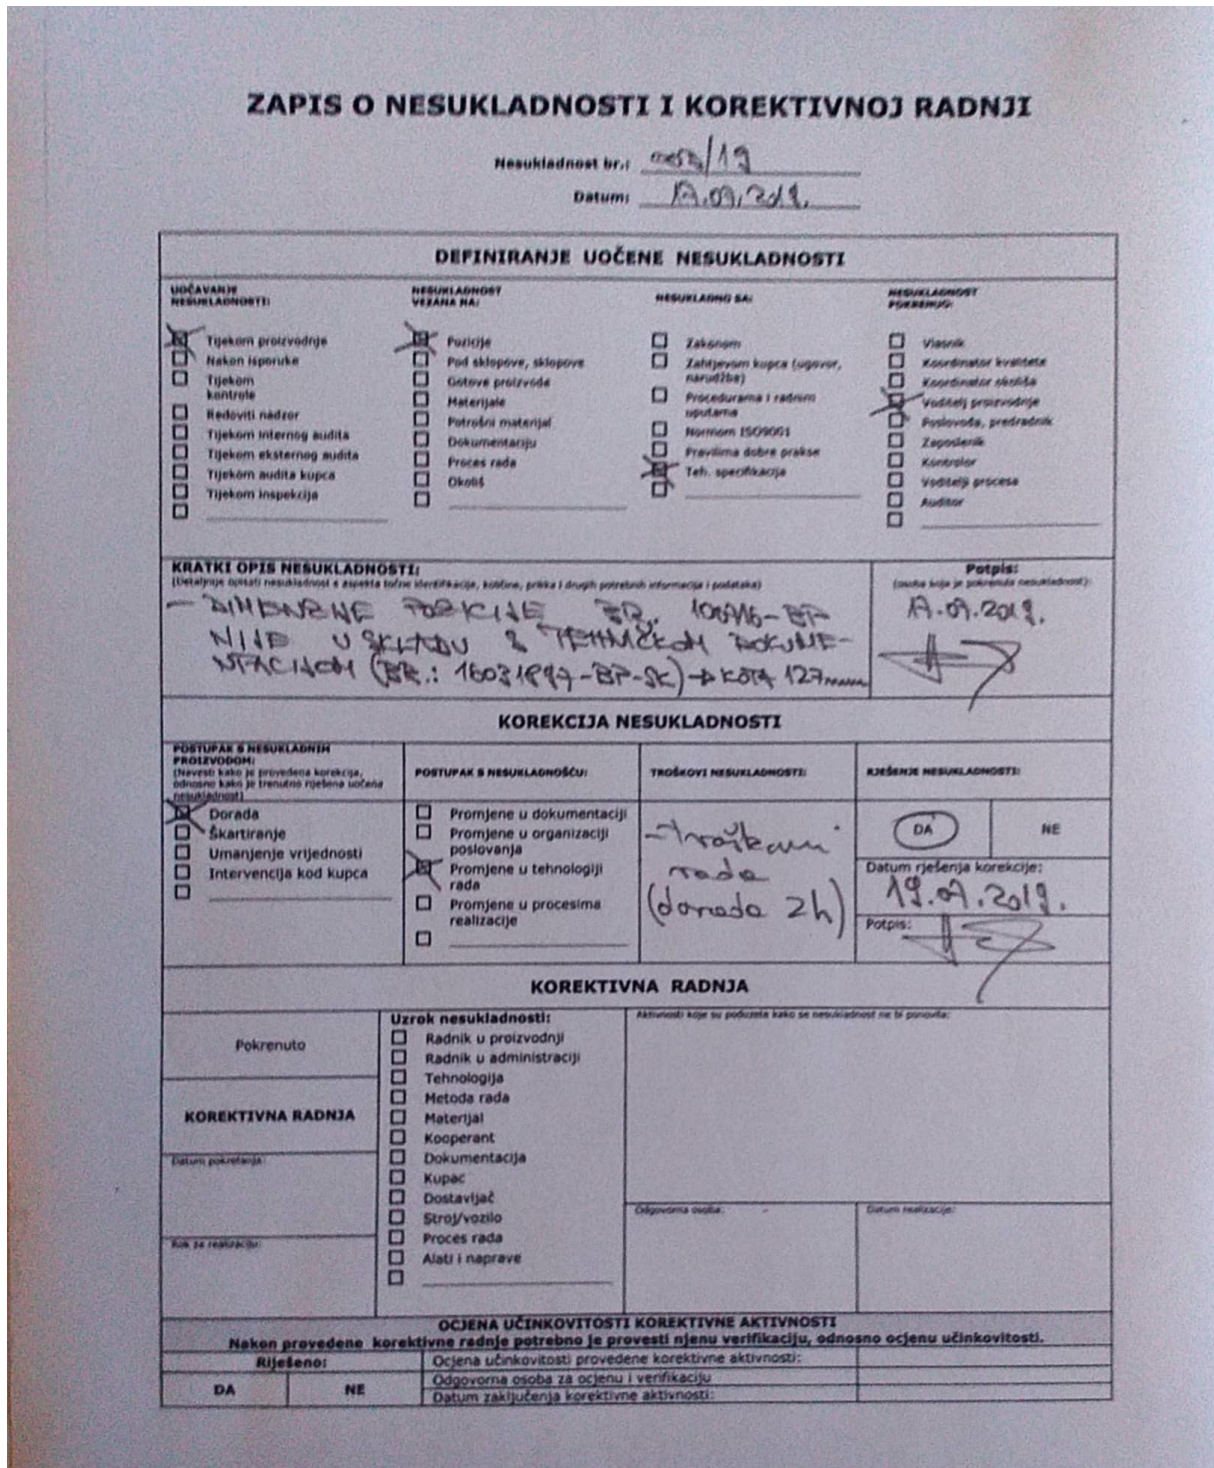 ZAPIS O NESUKLADNOSTI I KOREKTIVNOJ RADNJI
Nesukladnost br.: /19
Datum: 17.07.2019.
DEFINIRANJE UOČENE NESUKLADNOSTI
UOČAVANJE NESUKLADNOSTI:
Tijekom proizvodnje
Nakon isporuke
Tijekom kontrole
Redoviti nadzor
Tijekom internog audita
Tijekom eksternog audita
Tijekom audita kupca
Tijekom inspekcija
NESUKLADNOST VEZANA NA:
Pozicije
Pod sklopove, sklopove
Gotove proizvode
Materijale
Potrošni materijal
Dokumentaciju
Proces rada
Okoliš
NESUKLADNO SA:
Zakonom
Zahtjevom kupca (ugovor, narudžba)
Procedurama i radnim uputama
Normom ISO9001
Pravilima dobre prakse
Teh. specifikacija
NESUKLADNOST POKRENUO:
Vlasnik
Koordinator kvalitete
Koordinator okoliša
Voditelj proizvodnje
Poslovođa, predradnik
Zaposlenik
Kontrolor
Voditelj procesa
Auditor
KRATKI OPIS NESUKLADNOSTI:
(Detaljnije opisati nesukladnost s aspekta točne identifikacije, količine, prilika i drugih potrebnih informacija i podataka)
- POZICIJE BR.
NIJE U SKLADU S TEHNIČKOM DOKUME-
NTACIJOM (BR.: 16031897-BP-SK) → KOTA 127
Potpis:
(osoba koja je pokrenula nesukladnost):
17.07.2019.
KOREKCIJA NESUKLADNOSTI
POSTUPAK S NESUKLADNIM PROIZVODOM:
(Navesti kako je provedena korekcija, odnosno kako je trenutno riješena uočena nesukladnost)
Dorada
Škartiranje
Umanjenje vrijednosti
Intervencija kod kupca
POSTUPAK S NESUKLADNOŠĆU:
Promjene u dokumentaciji
Promjene u organizaciji poslovanja
Promjene u tehnologiji rada
Promjene u procesima realizacije
TROŠKOVI NESUKLADNOSTI:
- troškovi
rada
(dorada 2h)
RJEŠENJE NESUKLADNOSTI:
DA
NE
Datum rješenja korekcije:
19.07.2019.
Potpis:
KOREKTIVNA RADNJA
Pokrenuto
KOREKTIVNA RADNJA
Datum pokretanja:
Rok za realizaciju:
Uzrok nesukladnosti:
Radnik u proizvodnji
Radnik u administraciji
Tehnologija
Metoda rada
Materijal
Kooperant
Dokumentacija
Kupac
Dostavljač
Stroj/vozilo
Proces rada
Alati i naprave
Aktivnosti koje su poduzete kako se nesukladnost ne bi ponovila:
Odgovorna osoba:
Datum realizacije:
OCJENA UČINKOVITOSTI KOREKTIVNE AKTIVNOSTI
Nakon provedene korektivne radnje potrebno je provesti njenu verifikaciju, odnosno ocjenu učinkovitosti.
Riješeno:
DA
NE
Ocjena učinkovitosti provedene korektivne aktivnosti:
Odgovorna osoba za ocjenu i verifikaciju
Datum zaključenja korektivne aktivnosti: